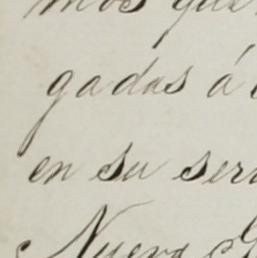 mos que
gadas á
en su ser
Nueva